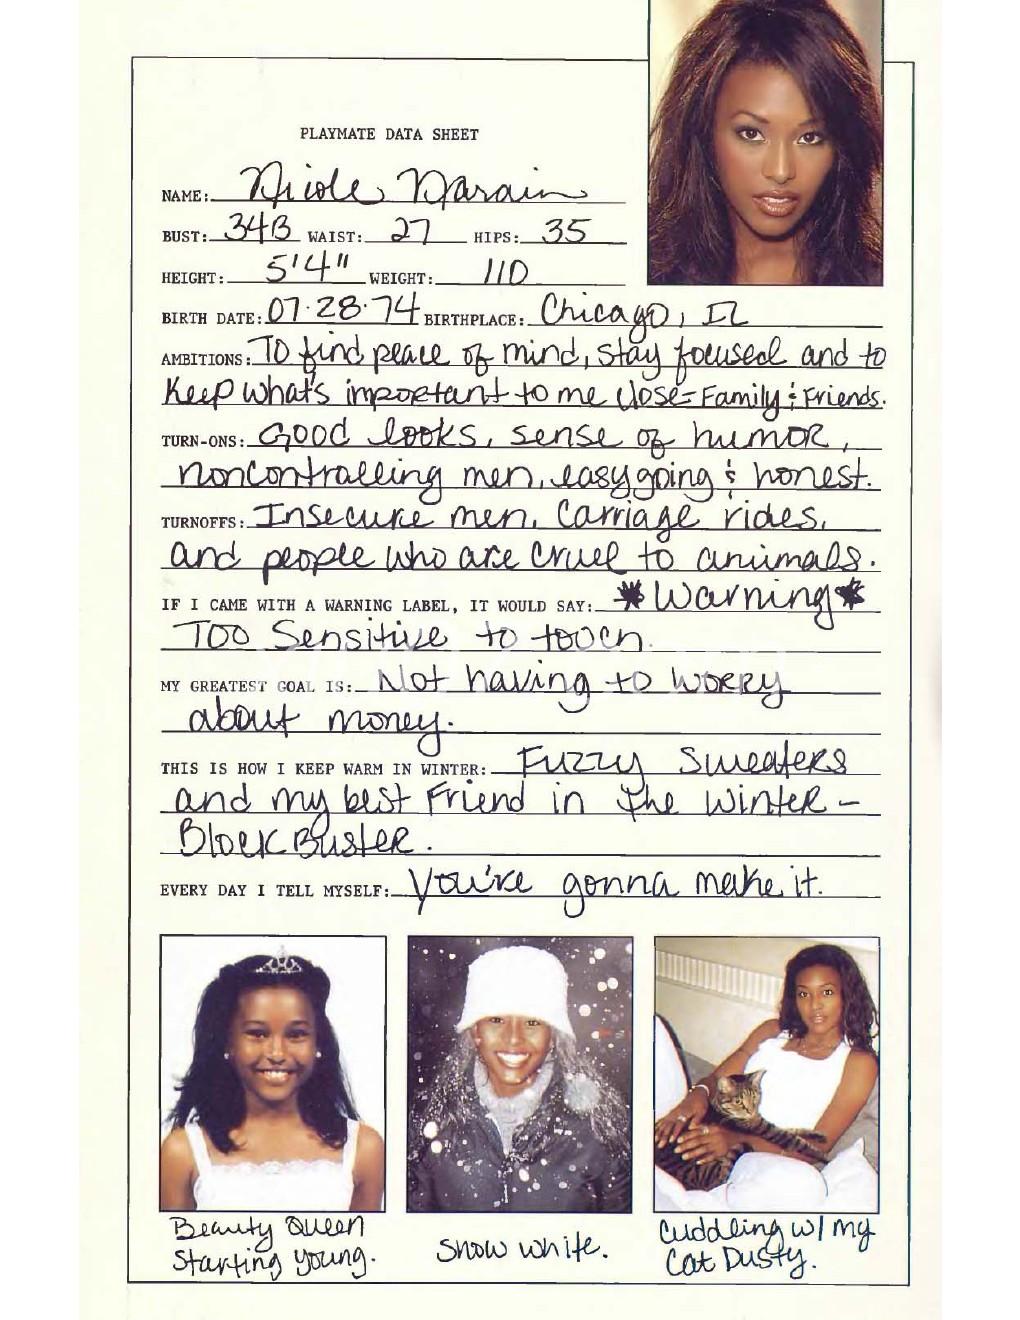 PLAYMATE DATA SHEET
NAME: Nicole Narain
BUST: 34B WAIST: 27 HIPS: 35
HEIGHT: 5'4" WEIGHT: 110
BIRTH DATE: 07·28·74 BIRTHPLACE: Chicago, IL
AMBITIONS: To find peace of mind, stay focused and to
keep what's important to me close = Family & Friends.
TURN-ONS: Good looks, sense of humor,
noncontrolling men, easygoing & honest.
TURNOFFS: Insecure men, carriage rides,
and people who are cruel to animals.
IF I CAME WITH A WARNING LABEL, IT WOULD SAY: *Warning*
Too Sensitive to touch.
MY GREATEST GOAL IS: Not having to worry
about money.
THIS IS HOW I KEEP WARM IN WINTER: Fuzzy Sweaters
and my best Friend in the winter -
BlockBuster.
EVERY DAY I TELL MYSELF: You're gonna make it.
Beauty Queen
Starting young.
Snow white.
Cuddling w/ my
Cat Dusty.